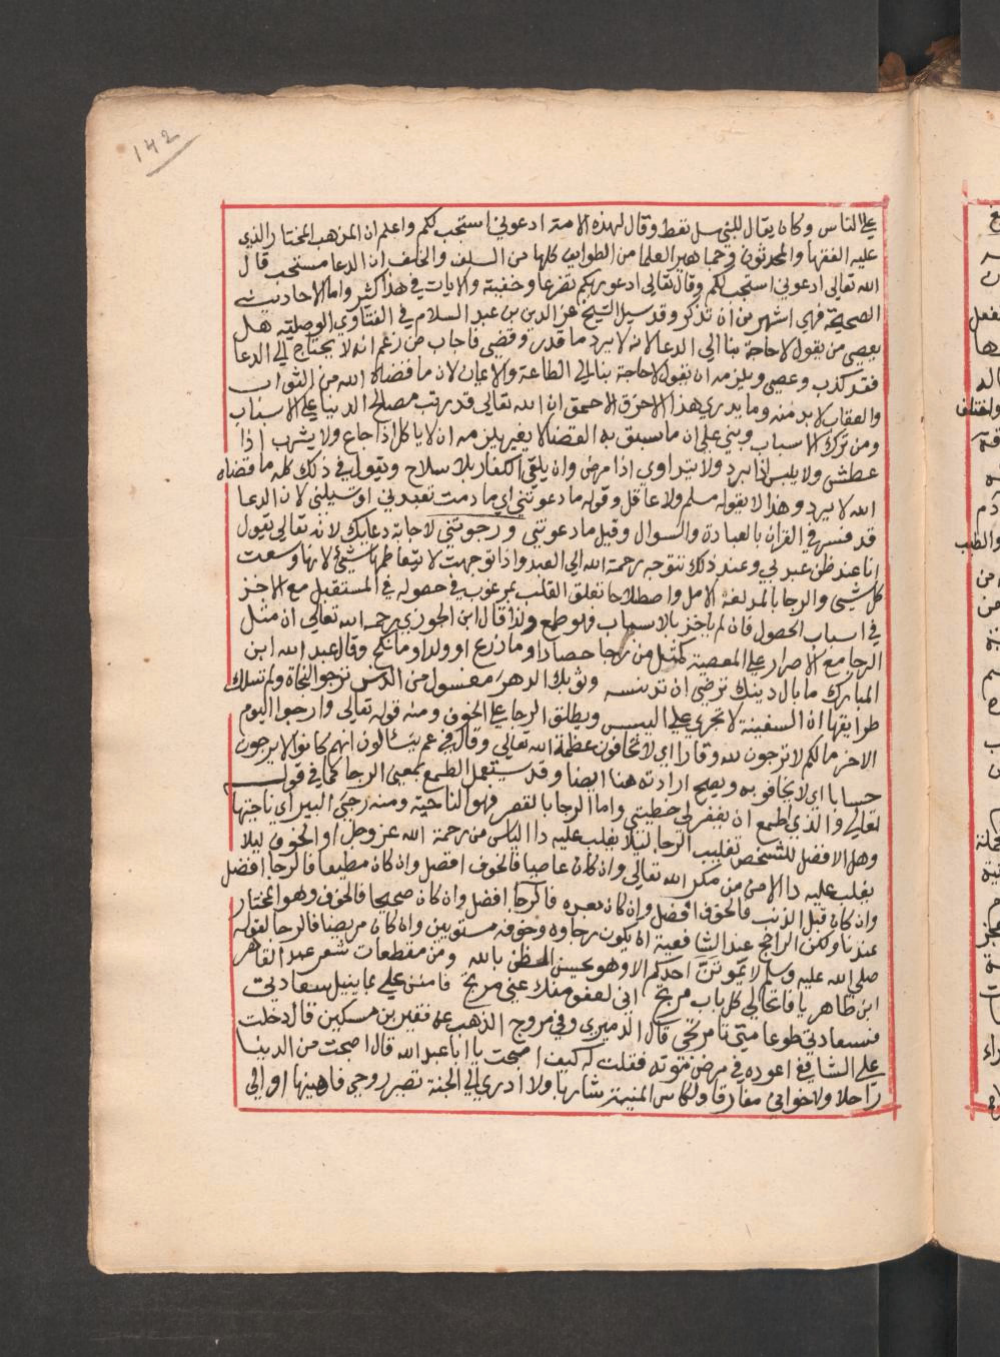 ١٤٢
على الناس وكان يقال للنبي سل تعط وقال لهذه الامة ادعوني استجب لكم واعلم ان المذهب المختار الذي
عليه الفقها والمحدثون وجماهير العلما من الطوايف كلها من السلف والخلف ان الدعا مستحب قال
الله تعالى ادعوني استجب لكم وقال تعالى ادعو ربكم تضرعا وخفية والايات في هذا كثير واما الاحاديث
الصحيحة فهي اشهر من ان تذكر وقد سيل الشيخ عز الدين بن عبد السلام في الفتاوي الموصلية هل
يعصي من يقول لا حاجة بنا الى الدعا لانه لا يرد ما قدر وقضي فاجاب من زعم انه لا يحتاج الى الدعا
فقد كذب وعصي ويلزمه ان يقول لا حاجة بنا الى الطاعة والايمان لان ما قضاه الله من الثواب
والعقاب لا بد منه وما يدري هذا الاخرق الاحمق ان الله تعالى قد رتب مصالح الدنيا على الاسباب
ومن ترك الاسباب وبني على ان ما سبق به القضا لا يغير يلزمه ان لا ياكل اذا جاع ولا يشرب اذا
عطش ولا يلبس اذا برد ولا يتداوي اذا مرض وان يلقي الكفار بلا سلاح ويقول في ذلك كله ما قضاه
الله لا يرد وهذا لا يقوله مسلم ولا عاقل وقوله ما دعوتني اي ما دمت تعبدني او تسيلني لان الدعا
قد فسر في القران بالعبادة والسوال وقيل ما دعوتني ورجوتني لاجابة دعايك لانه تعالى يقول
انا عند ظن عبدي بي وعند ذلك تتوجه رحمة الله الى العبد واذا توجهت لا يتعاظمها شيء لانها وسعت
كل شيى والرجا بالمد لغة الامل واصطلاحا تعلق القلب بمرغوب في حصوله في المستقبل مع الاخذ
في اسباب الحصول فان لم ياخذ بالاسباب فهو طمع ولذا قال ابن الجوزي رحمه الله تعالى ان مثل
الرجا مع الاصرار على المعصية كمثل من رجا حصادا وما زرع او ولدا وما نكح وقال عبد الله ابن
المبارك ما بال دينك ترضي ان تدنسه وثوبك الدهر مغسول من الدنس ترجو النجاة ولم تسلك
طرايقها ان السفينة لا تجري على اليبس ويطلق الرجا على الخوف ومنه قوله تعالى وارجوا اليوم
الاخر ما لكم لا ترجون لله وقارا اي لا تخافون عظمة الله تعالى وقال في عم يتسالون انهم كانوا لا يرجون
حسابا اي لا يخافونه ويصح ارادته هنا ايضا وقد يستعمل الطمع بمعنى الرجا كما في قوله
تعالى والذي اطمع ان يغفر لي خطيتي واما الرجا بالقصر فهو الناحية ومنه رجي البير اي ناحيتها
وهل الافضل للشخص تغليب الرجا ليلا يغلب عليه دا الياس من رحمة الله عز وجل او الخوف ليلا
يغلب عليه دا الامن من مكر الله تعالى وان كان عاصيا فالخوف افضل وان كان مطيعا فالرجا افضل
وان كان قبل الذنب فالخوف افضل وان كان بعده فالرجا افضل وان كان صحيحا فالخوف وهو المختار
عندنا ولكن الراجح عند الشافعية ان يكون رجاوه وخوفه مستويين وان كان مريضا فالرجا لقوله
صلى الله عليه وسلم لا يموتن احدكم الا وهو يحسن الظن بالله ومن مقطعات شعر عبد القاهر
ابن طاهر يا فاتحا لي كل باب مرتج اني لعفو منك عني مرتج فامنن علي بما ينيل سعادتي
فسعادتي طوعا متى تامر تجي قال الدميري وفي مروج الذهب عن فقير بن مسكين قال دخلت
على الشافعي اعوده في مرض موته فقلت له كيف اصبحت يا ابا عبد الله قال اصبحت من الدنيا
راحلا ولاخواني مفارقا ولكاس المنية شاربا ولا ادري الى الجنة تصير روحي فاهنيها او الى